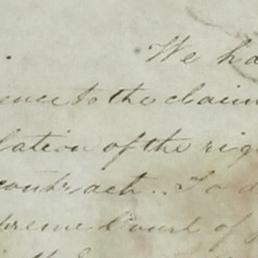 We ha
ence to the claim
lation of the rig
contract. To d
preme Court of